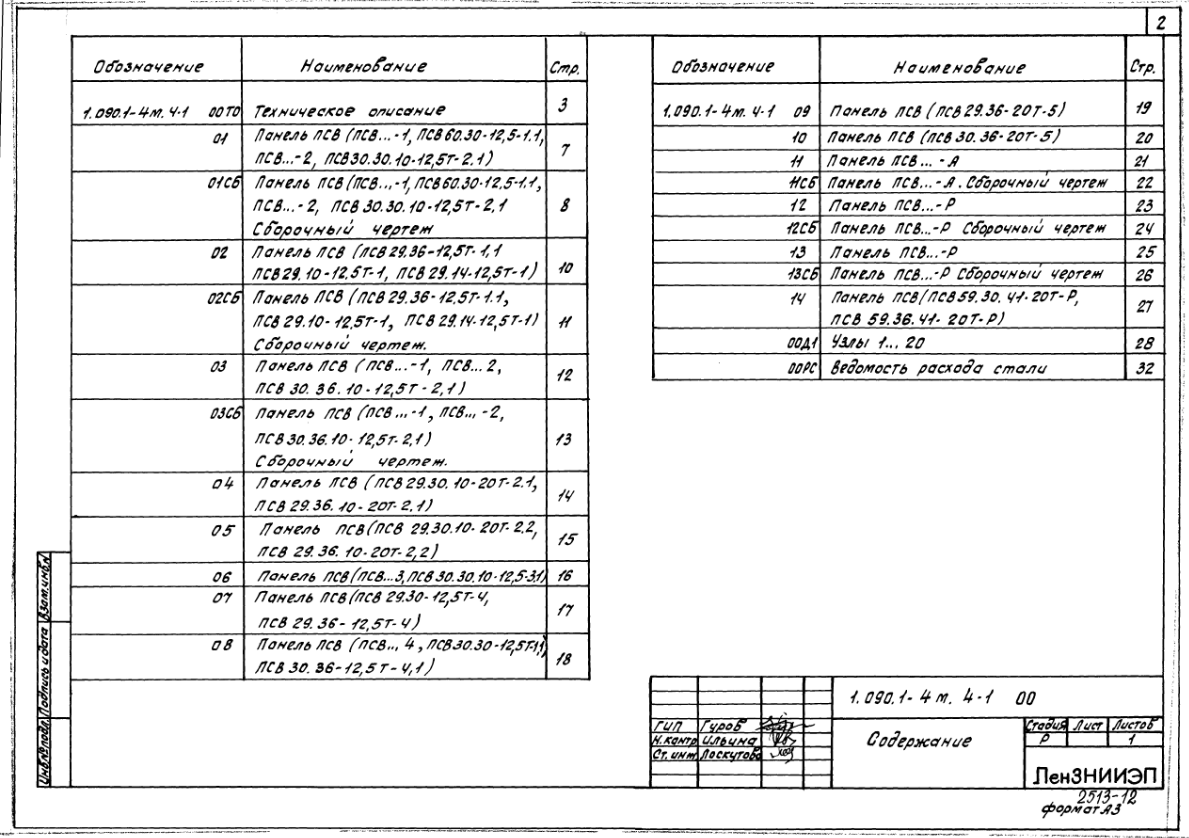 2
Обозначение Наименование Стр.
1.090.1-4м. 4-1 00ТО Техническое описание 3
01 Панель ПСВ (ПСВ...-1, ПСВ60.30-12,5-1.1,
ПСВ...-2, ПСВ30.30.10-12,5т-2.1) 7
01СБ Панель ПСВ (ПСВ...-1, ПСВ60.30-12,5-1.1,
ПСВ...-2, ПСВ 30.30.10-12,5т-2,1 8
Сборочный чертеж
02 Панель ПСВ (ПСВ 29.36-12,5т-1,1
ПСВ29.10-12,5т-1, ПСВ 29.14-12,5т-1) 10
02СБ Панель ПСВ (ПСВ 29.36-12,5т-1.1,
ПСВ 29.10-12,5т-1, ПСВ 29.14-12,5т-1) 11
Сборочный чертеж.
03 Панель ПСВ (ПСВ...-1, ПСВ...2,
ПСВ 30.36.10-12,5т-2,1) 12
03СБ Панель ПСВ (ПСВ...-1, ПСВ...-2,
ПСВ 30.36.10-12,5т-2,1) 13
Сборочный чертеж.
04 Панель ПСВ (ПСВ29.30.10-20т-2.1,
ПСВ 29.36.10-20т-2,1) 14
05 Панель ПСВ(ПСВ 29.30.10-20т-2.2,
ПСВ 29.36.10-20т-2,2) 15
06 Панель ПСВ(ПСВ...3, ПСВ30.30.10-12,5-3.1) 16
07 Панель ПСВ(ПСВ 29.30-12,5т-4,
ПСВ 29.36-12,5т-4) 17
08 Панель ПСВ (ПСВ.., 4, ПСВ30.30-12,5т-1,1)
ПСВ 30.36-12,5т-4,1) 18
Обозначение Наименование Стр.
1.090.1-4м. 4-1 09 Панель ПСВ (ПСВ29.36-20т-5) 19
10 Панель ПСВ (ПСВ 30.36-20т-5) 20
11 Панель ПСВ...-А 21
11СБ Панель ПСВ...-А. Сборочный чертеж 22
12 Панель ПСВ...-Р 23
12СБ Панель ПСВ...-Р Сборочный чертеж 24
13 Панель ПСВ...-Р 25
13СБ Панель ПСВ...-Р Сборочный чертеж 26
14 Панель ПСВ(ПСВ59.30.41-20т-Р,
ПСВ 59.36.41-20т-Р) 27
00Д1 Узлы 1...20 28
00РС Ведомость расхода стали 32
Инв.№подл. Подпись и дата Взам.инв.№
1.090.1-4м. 4-1 00
ГИП Гуров
Н.контр Ильина
Ст.инж Лоскутова
Содержание
Стадия Лист Листов
Р 1
ЛенЗНИИЭП
2513-12
формат А3